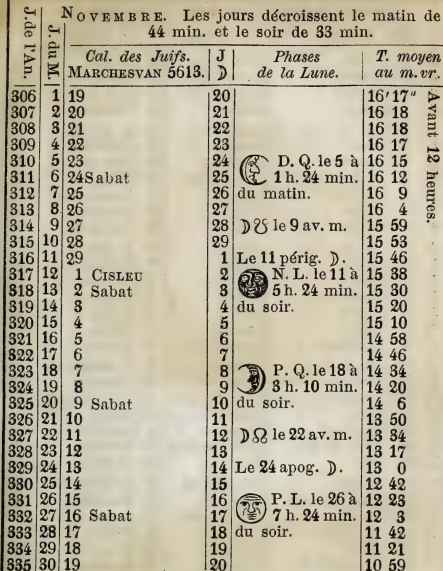 NOVEMBRE. Les jours décroissent le matin de
44 min. et le soir de 33 min.
J. de l'An. J. du M. Cal. des Juifs. MARCHESVAN 5613. J ☽ Phases de la Lune. T. moyen au m. vr.
306 1 19 20 16' 17"
307 2 20 21 16 18
308 3 21 22 16 18
309 4 22 23 16 17
310 5 23 24 D. Q. le 5 à 16 15
311 6 24 Sabat 25 1 h. 24 min. 16 12
312 7 25 26 du matin. 16 9
313 8 26 27 16 4
314 9 27 28 ☽☋ le 9 av. m. 15 59
315 10 28 29 15 53
316 11 29 1 Le 11 périg. ☽. 15 46
317 12 1 CISLEU 2 N. L. le 11 à 15 38
318 13 2 Sabat 3 5 h. 24 min. 15 30
319 14 3 4 du soir. 15 20
320 15 4 5 15 10
321 16 5 6 14 58
322 17 6 7 14 46
323 18 7 8 P. Q. le 18 à 14 34
324 19 8 9 3 h. 10 min. 14 20
325 20 9 Sabat 10 du soir. 14 6
326 21 10 11 13 50
327 22 11 12 ☽☊ le 22 av. m. 13 34
328 23 12 13 13 17
329 24 13 14 Le 24 apog. ☽. 13 0
330 25 14 15 12 42
331 26 15 16 P. L. le 26 à 12 23
332 27 16 Sabat 17 7 h. 24 min. 12 3
333 28 17 18 du soir. 11 42
334 29 18 19 11 21
335 30 19 20 10 59
Avant 12 heures.